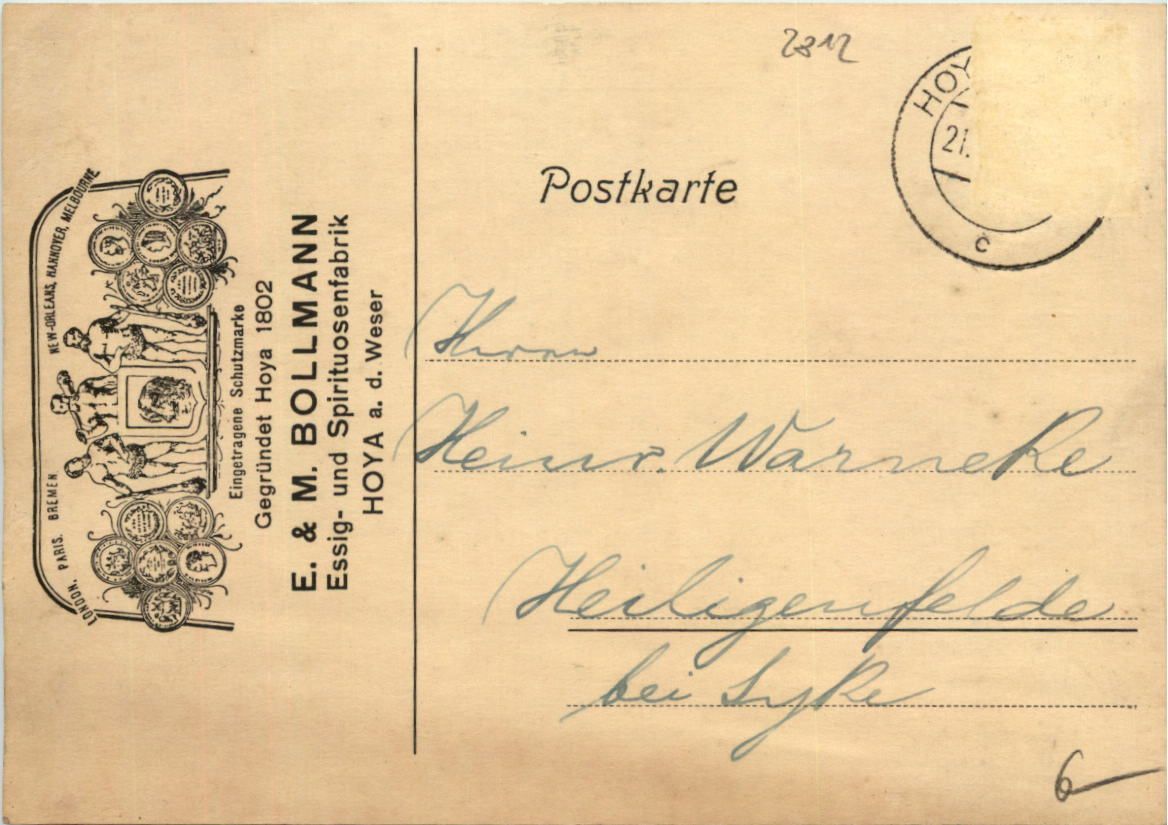 NEW-ORLEANS, HANNOVER, MELBOURNE
LONDON, PARIS, BREMEN
Eingetragene Schutzmarke
Gegründet Hoya 1802
E. & M. BOLLMANN
Essig- und Spirituosenfabrik
HOYA a. d. Weser
2812
HOY
21.
c
Postkarte
Herrn
Heinr. Warneke
Heiligenfelde
bei Syke
6